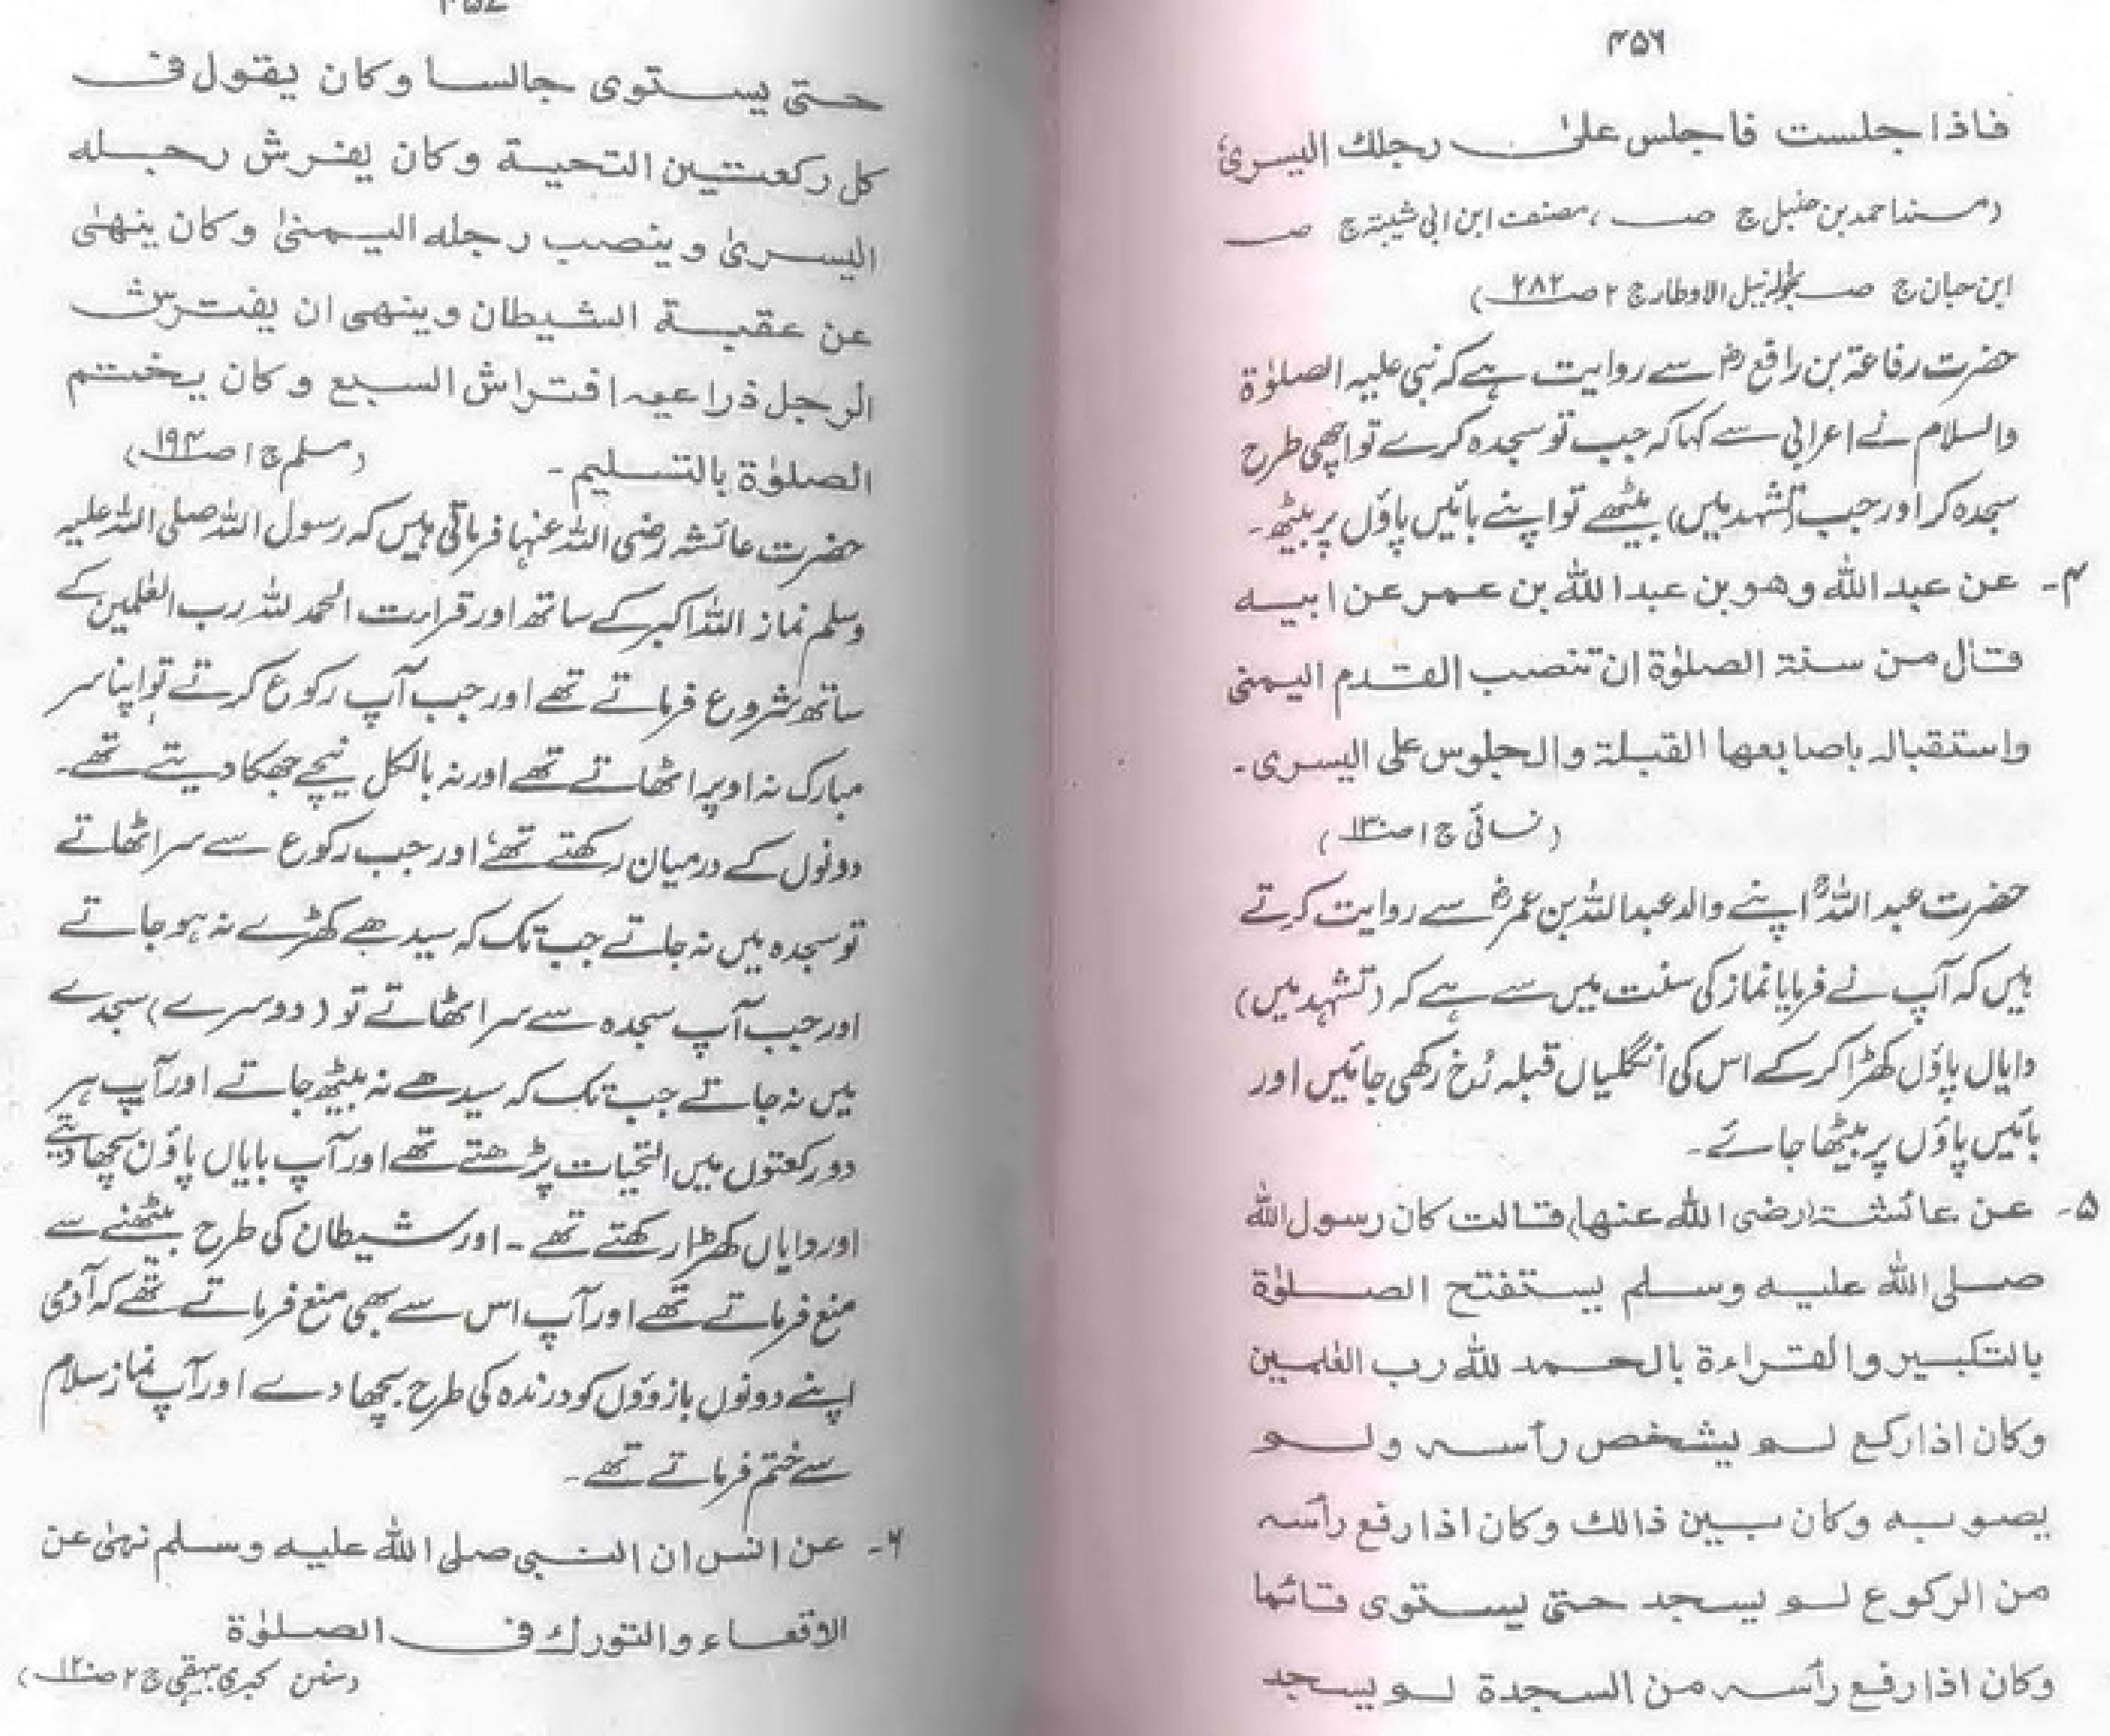 ۴۵۶
فاذا جلست فاجلس علیٰ رجلك الیسریٰ
(مسند احمد بن حنبل ج صـ ، مصنف ابن ابی شیبۃ ج صـ
ابن حبان ج صـ بحوالہ نیل الاوطار ج ۲ صـ ۲۸۲)
حضرت رفاعۃ بن رافعؓ سے روایت ہے کہ نبی علیہ الصلوٰۃ
والسلام نے اعرابی سے کہا کہ جب تو سجدہ کرے تو اچھی طرح
سجدہ کر اور جب (تشہد میں) بیٹھے تو اپنے بائیں پاؤں پر بیٹھ۔
۴۔ عن عبد الله وهو بن عبد الله بن عمر عن ابیه
قال من سنة الصلوٰة ان تنصب القدم الیمنی
واستقباله باصابعها القبلة والجلوس علی الیسری۔
(نسائی ج ۱ صـ ۱۳۰)
حضرت عبد اللہؒ اپنے والد عبد اللہ بن عمرؓ سے روایت کرتے
ہیں کہ آپ نے فرمایا نماز کی سنت میں سے ہے کہ (تشہد میں)
دایاں پاؤں کھڑا کر کے اس کی انگلیاں قبلہ رُخ رکھی جائیں اور
بائیں پاؤں پر بیٹھا جائے۔
۵۔ عن عائشة (رضی الله عنها) قالت کان رسول الله
صلی الله علیه وسلم یستفتح الصلوٰة
بالتکبیر والقراءة بالحمد لله رب العٰلمین
وکان اذا رکع لم یشخص رأسه ولم
یصوبه وکان بین ذالك وکان اذا رفع رأسه
من الرکوع لم یسجد حتی یستوی قائما
وکان اذا رفع رأسه من السجدة لم یسجد
۴۵۷
حتی یستوی جالسا وکان یقول فی
کل رکعتین التحیة وکان یفرش رجله
الیسریٰ وینصب رجله الیمنیٰ وکان ینهٰی
عن عقبة الشیطان وینهی ان یفترش
الرجل ذراعیه افتراش السبع وکان یختم
الصلوٰة بالتسلیم۔ (مسلم ج ۱ صـ ۱۹۴)
حضرت عائشہ رضی اللہ عنہا فرماتی ہیں کہ رسول اللہ صلی اللہ علیہ
وسلم نماز اللہ اکبر کے ساتھ اور قراءت الحمد للہ رب العٰلمین کے
ساتھ شروع فرماتے تھے اور جب آپ رکوع کرتے تو اپنا سر
مبارک نہ اوپر اٹھاتے تھے اور نہ بالکل نیچے جھکا دیتے تھے۔
دونوں کے درمیان رکھتے تھے، اور جب رکوع سے سر اٹھاتے
تو سجدہ میں نہ جاتے جب تک کہ سیدھے کھڑے نہ ہو جاتے
اور جب آپ سجدہ سے سر اٹھاتے تو (دوسرے) سجدے
میں نہ جاتے جب تک کہ سیدھے نہ بیٹھ جاتے اور آپ ہر
دو رکعتوں میں التحیات پڑھتے تھے اور آپ بایاں پاؤں بچھا دیتے
اور دایاں کھڑا رکھتے تھے۔ اور شیطان کی طرح بیٹھنے سے
منع فرماتے تھے اور آپ اس سے بھی منع فرماتے تھے کہ آدمی
اپنے دونوں بازوؤں کو درندہ کی طرح بچھا دے اور آپ نماز سلام
سے ختم فرماتے تھے۔
۶۔ عن انس ان النبی صلی الله علیه وسلم نهٰی عن
الاقعاء والتورك فی الصلوٰة
(سنن کبری بیہقی ج ۲ صـ ۱۲۰)